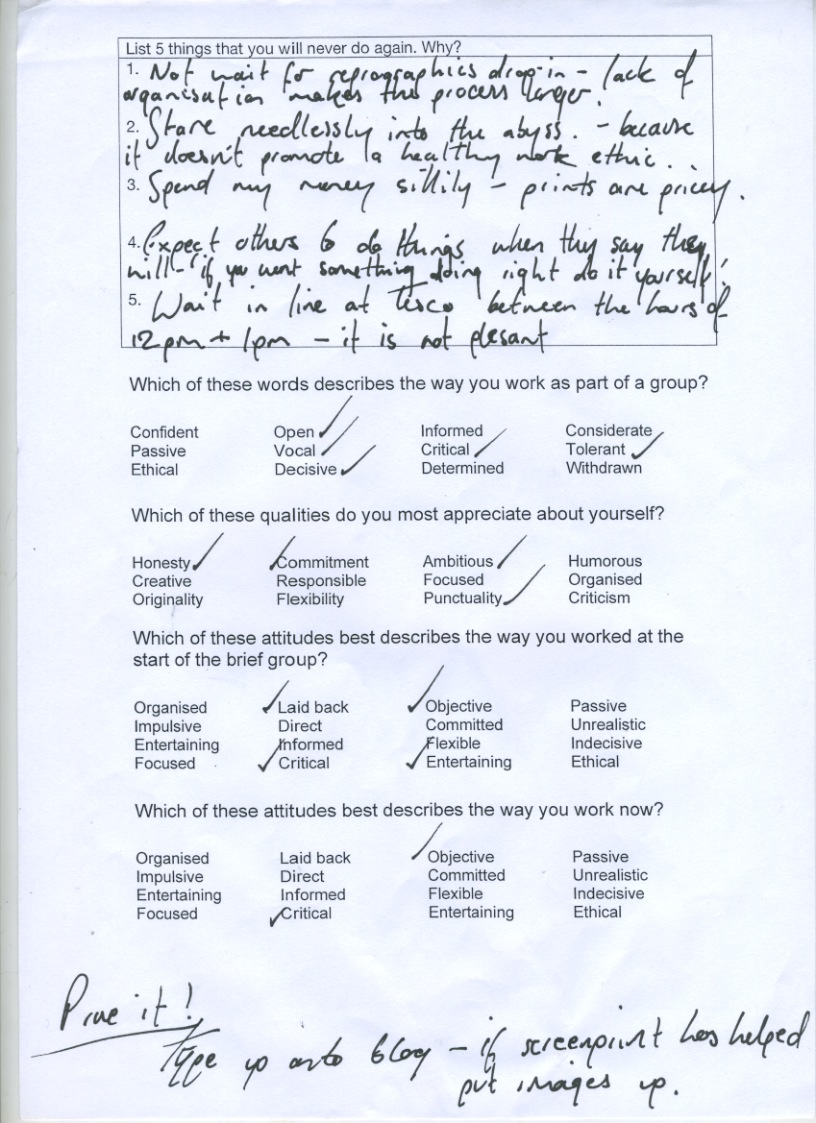 List 5 things that you will never do again. Why?
1. Not wait for reprographics drop-in - lack of
organisation makes this process longer.
2. Stare needlessly into the abyss. - because
it doesn't promote a healthy work ethic.
3. Spend my money sillily - prints are pricey.
4. Expect others to do things when they say they
will - 'if you want something doing right do it yourself'!
5. Wait in line at Tesco between the hours of
12pm + 1pm - it is not plesant
Which of these words describes the way you work as part of a group?
Confident Open Informed Considerate
Passive Vocal Critical Tolerant
Ethical Decisive Determined Withdrawn
Which of these qualities do you most appreciate about yourself?
Honesty Commitment Ambitious Humorous
Creative Responsible Focused Organised
Originality Flexibility Punctuality Criticism
Which of these attitudes best describes the way you worked at the
start of the brief group?
Organised Laid back Objective Passive
Impulsive Direct Committed Unrealistic
Entertaining Informed Flexible Indecisive
Focused Critical Entertaining Ethical
Which of these attitudes best describes the way you work now?
Organised Laid back Objective Passive
Impulsive Direct Committed Unrealistic
Entertaining Informed Flexible Indecisive
Focused Critical Entertaining Ethical
Prove it!
Type up onto blog - if screenprint has helped
put images up.